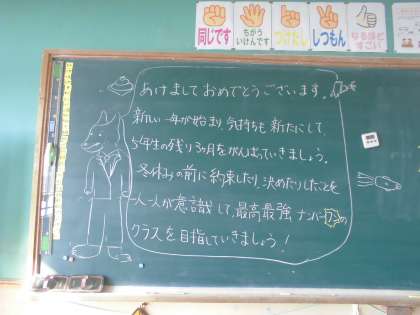 同じです
ちがう
いけんです
つけたし
しつもん
なるほど
すごい
あけましておめでとうございます。
新しい年が始まり、気持ちも新たにして、
5年生の残り3ヶ月をがんばっていきましょう。
冬休みの前に約束したり、決めたりしたことを
一人一人が意識して、最高最強ナンバーワンの
クラスを目指していきましょう!